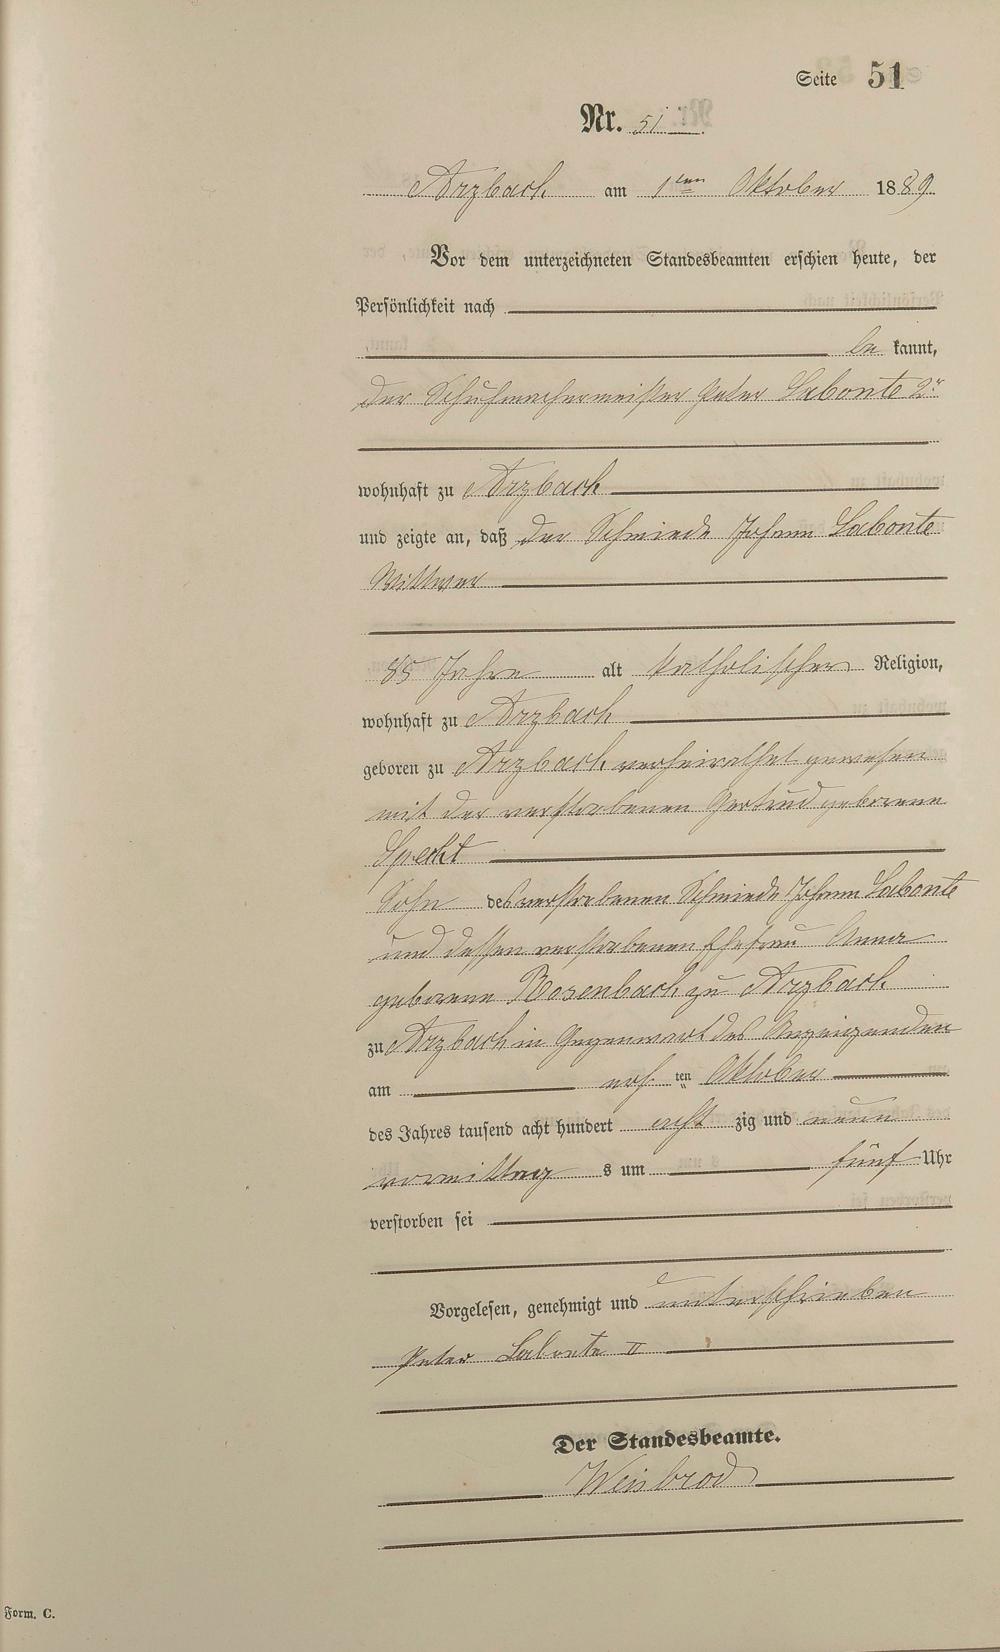 Seite 51
Nr. 51
Arzbach am 1ten Oktober 1889
Vor dem unterzeichneten Standesbeamten erschien heute, der
Persönlichkeit nach
be kannt,
der Schuhmachermeister Peter Labonte 2r
wohnhaft zu Arzbach
und zeigte an, daß der Schmiede Johann Labonte
Wittwer
85 Jahre alt katholischer Religion,
wohnhaft zu Arzbach
geboren zu Arzbach verheirathet gewesen
mit der verstorbenen Gertrud geborene
Specht
Sohn des verstorbenen Schmiede Johann Labonte
und dessen verstorbenen Ehefrau Anna
geborene Rosenbach zu Arzbach
zu Arzbach in Gegenwart des Anzeigenden
am ten Oktober
des Jahres tausend acht hundert acht zig und neun
vormittag s um fünf Uhr
verstorben sei
Vorgelesen, genehmigt und unterschrieben
Peter Labonte II
Der Standesbeamte.
Weisbrod
Form. C.